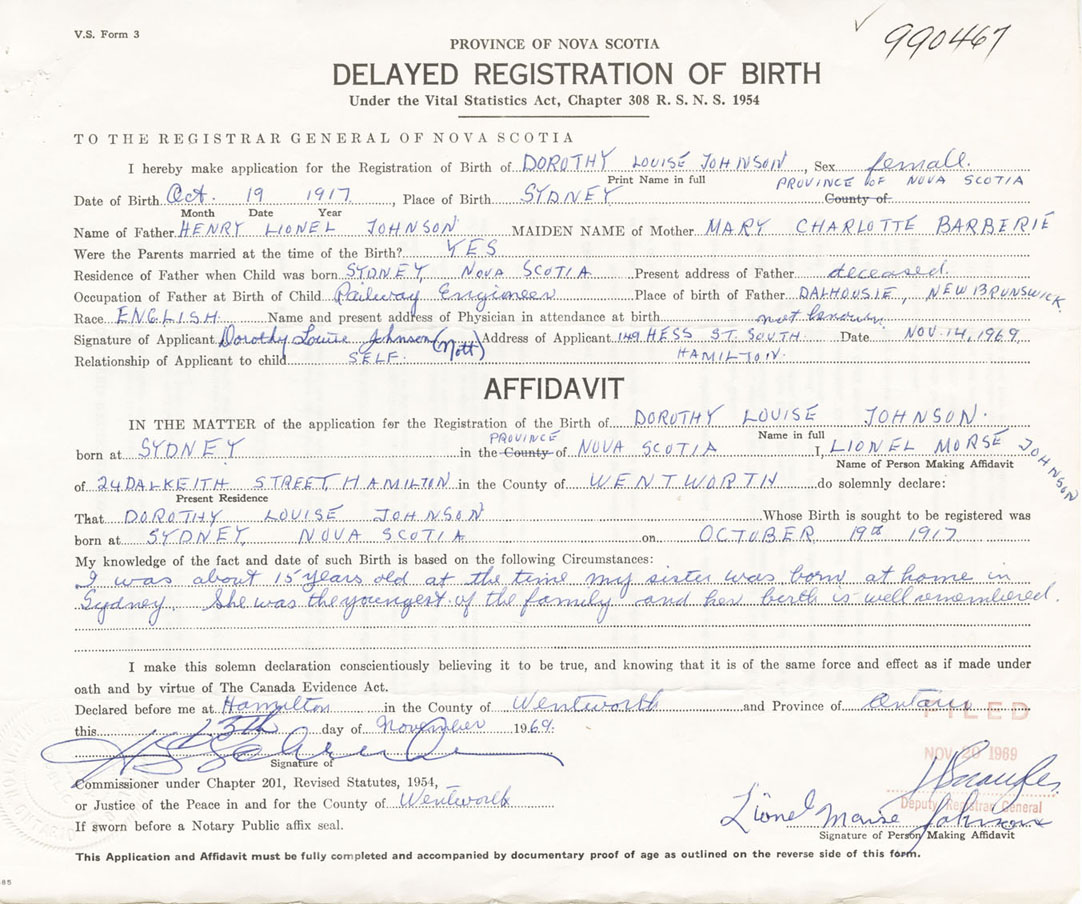 V.S. Form 3
990467
PROVINCE OF NOVA SCOTIA
DELAYED REGISTRATION OF BIRTH
Under the Vital Statistics Act, Chapter 308 R. S. N. S. 1954
TO THE REGISTRAR GENERAL OF NOVA SCOTIA
I hereby make application for the Registration of Birth of DOROTHY LOUISE JOHNSON, Sex female.
Print Name in full PROVINCE OF NOVA SCOTIA
Date of Birth Oct. 19 1917, Place of Birth SYDNEY County of
Month Date Year
Name of Father HENRY LIONEL JOHNSON MAIDEN NAME of Mother MARY CHARLOTTE BARBERIE
Were the Parents married at the time of the Birth? YES
Residence of Father when Child was born SYDNEY, NOVA SCOTIA Present address of Father deceased.
Occupation of Father at Birth of Child Railway Engineer Place of birth of Father DALHOUSIE, NEW BRUNSWICK
Race ENGLISH Name and present address of Physician in attendance at birth not known.
Signature of Applicant Dorothy Louise Johnson (Nott) Address of Applicant 149 HESS ST. SOUTH Date NOV. 14, 1969
Relationship of Applicant to child SELF. HAMILTON.
AFFIDAVIT
IN THE MATTER of the application for the Registration of the Birth of DOROTHY LOUISE JOHNSON.
PROVINCE Name in full
born at SYDNEY in the County of NOVA SCOTIA I, LIONEL MORSE JOHNSON
Name of Person Making Affidavit
of 24 DALKEITH STREET, HAMILTON in the County of WENTWORTH do solemnly declare:
Present Residence
That DOROTHY LOUISE JOHNSON Whose Birth is sought to be registered was
born at SYDNEY, NOVA SCOTIA on OCTOBER 19th 1917
My knowledge of the fact and date of such Birth is based on the following Circumstances:
I was about 15 years old at the time my sister was born at home in
Sydney. She was the youngest of the family and her birth is well remembered.
I make this solemn declaration conscientiously believing it to be true, and knowing that it is of the same force and effect as if made under
oath and by virtue of The Canada Evidence Act.
Declared before me at Hamilton in the County of Wentworth and Province of Ontario
FILED
this day of November 1969.
NOV 20 1969
Signature of
Commissioner under Chapter 201, Revised Statutes, 1954,
Deputy Registrar General
or Justice of the Peace in and for the County of Wentworth
Lionel Morse Johnson
If sworn before a Notary Public affix seal.
Signature of Person Making Affidavit
This Application and Affidavit must be fully completed and accompanied by documentary proof of age as outlined on the reverse side of this form.